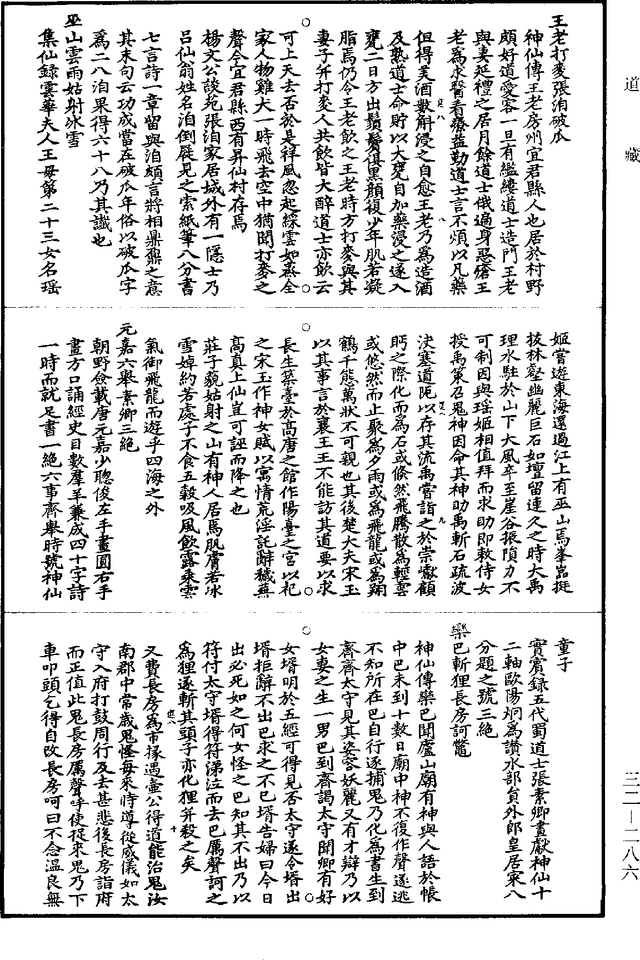 道藏
王老打麥張洎破瓜
神仙傳王老房州宜君縣人也居於村野
頗好道愛客一旦有繿縷道士造門王老
與妻延禮之居月餘道士俄遍身惡瘡王
老爲求醫看療益勤道士言不煩以凡藥
但得美酒數斛浸之自愈王老乃爲造酒
及熟道士命貯以大甕自加藥浸之遂入
甕二日方出鬚鬢俱黑顏復少年肌若凝
脂焉仍令王老飲之王老時方打麥與其
妻子并打麥人共飲皆大醉道士亦飲云
可上天去否於是祥風忽起綵雲如蒸全
家人物雞犬一時飛去空中猶聞打麥之
聲今宜君縣西有昇仙村存焉
楊文公談苑張洎家居城外有一隱士乃
呂仙翁姓名洎倒屣見之索紙筆八分書
七言詩一章留與洎頗言將相鼎鼐之意
其末句云功成當在破瓜年俗以破瓜字
爲二八洎果得六十八乃其讖也
巫山雲雨姑射冰雪
集仙錄雲華夫人王母第二十三女名瑶
姬嘗遊東海還過江上有巫山焉峯嵓挺
拔林壑幽麗巨石如壇留連久之時大禹
理水駐於山下大風卒至崖谷振隕力不
可制因與瑶姬相值拜而求助即敕侍女
授禹策召鬼神因命其神助禹斬石疏波
決塞道阨以存其流禹嘗詣之於崇巘顧
眄之際化而爲石或倏然飛騰散爲輕雲
或悠然而止聚爲夕雨或爲飛龍或爲翔
鶴千態萬狀不可親也其後楚大夫宋玉
以其事言於襄王王不能訪其道要以求
長生築臺於高唐之館作陽臺之宫以祀
之宋玉作神女賦以寓情荒淫託辭穢蕪
高真上仙豈可誣而降之也
莊子藐姑射之山有神人居焉肌膚若冰
雪婥約若處子不食五穀吸風飲露乘雲
氣御飛龍而遊乎四海之外
元嘉六舉素卿三絶
朝野僉載唐元嘉少聰俊左手畫圓右手
畫方口誦經史目數羣羊兼成四十字詩
一時而就足書一絶六事齊舉時號神仙
童子
賓賓錄五代蜀道士張素卿畫獻神仙十
二軸歐陽炯爲讚水部貟外郎皇居寀八
分題之號三絶
欒巴斬狸長房訶鼈
神仙傳欒巴聞廬山廟有神與人語於帳
中巴未到十數日廟中神不復作聲遂逃
不知所在巴自行逐捕鬼乃化爲書生到
齊齊太守見其姿容妖麗又有才辯乃以
女妻之生一男巴到齊謁太守聞卿有好
女壻明於五經可得見否太守遂令壻出
壻拒辭不出巴求之不已壻告婦曰今日
出必死如之何女怪之巴知其不出乃以
符付太守壻得符涕泣而去巴厲聲訶之
爲狸遂斬其頭子亦化狸并殺之矣
又費長房爲市掾遇壷公得道能治鬼汝
南郡中常歲鬼怪每來時導從威儀如太
守入府打鼓周行及去甚悲後長房詣府
而正值此鬼長房厲聲呼使捉來鬼乃下
車叩頭乞得自改長房呵曰不念溫良無
三二—二八六